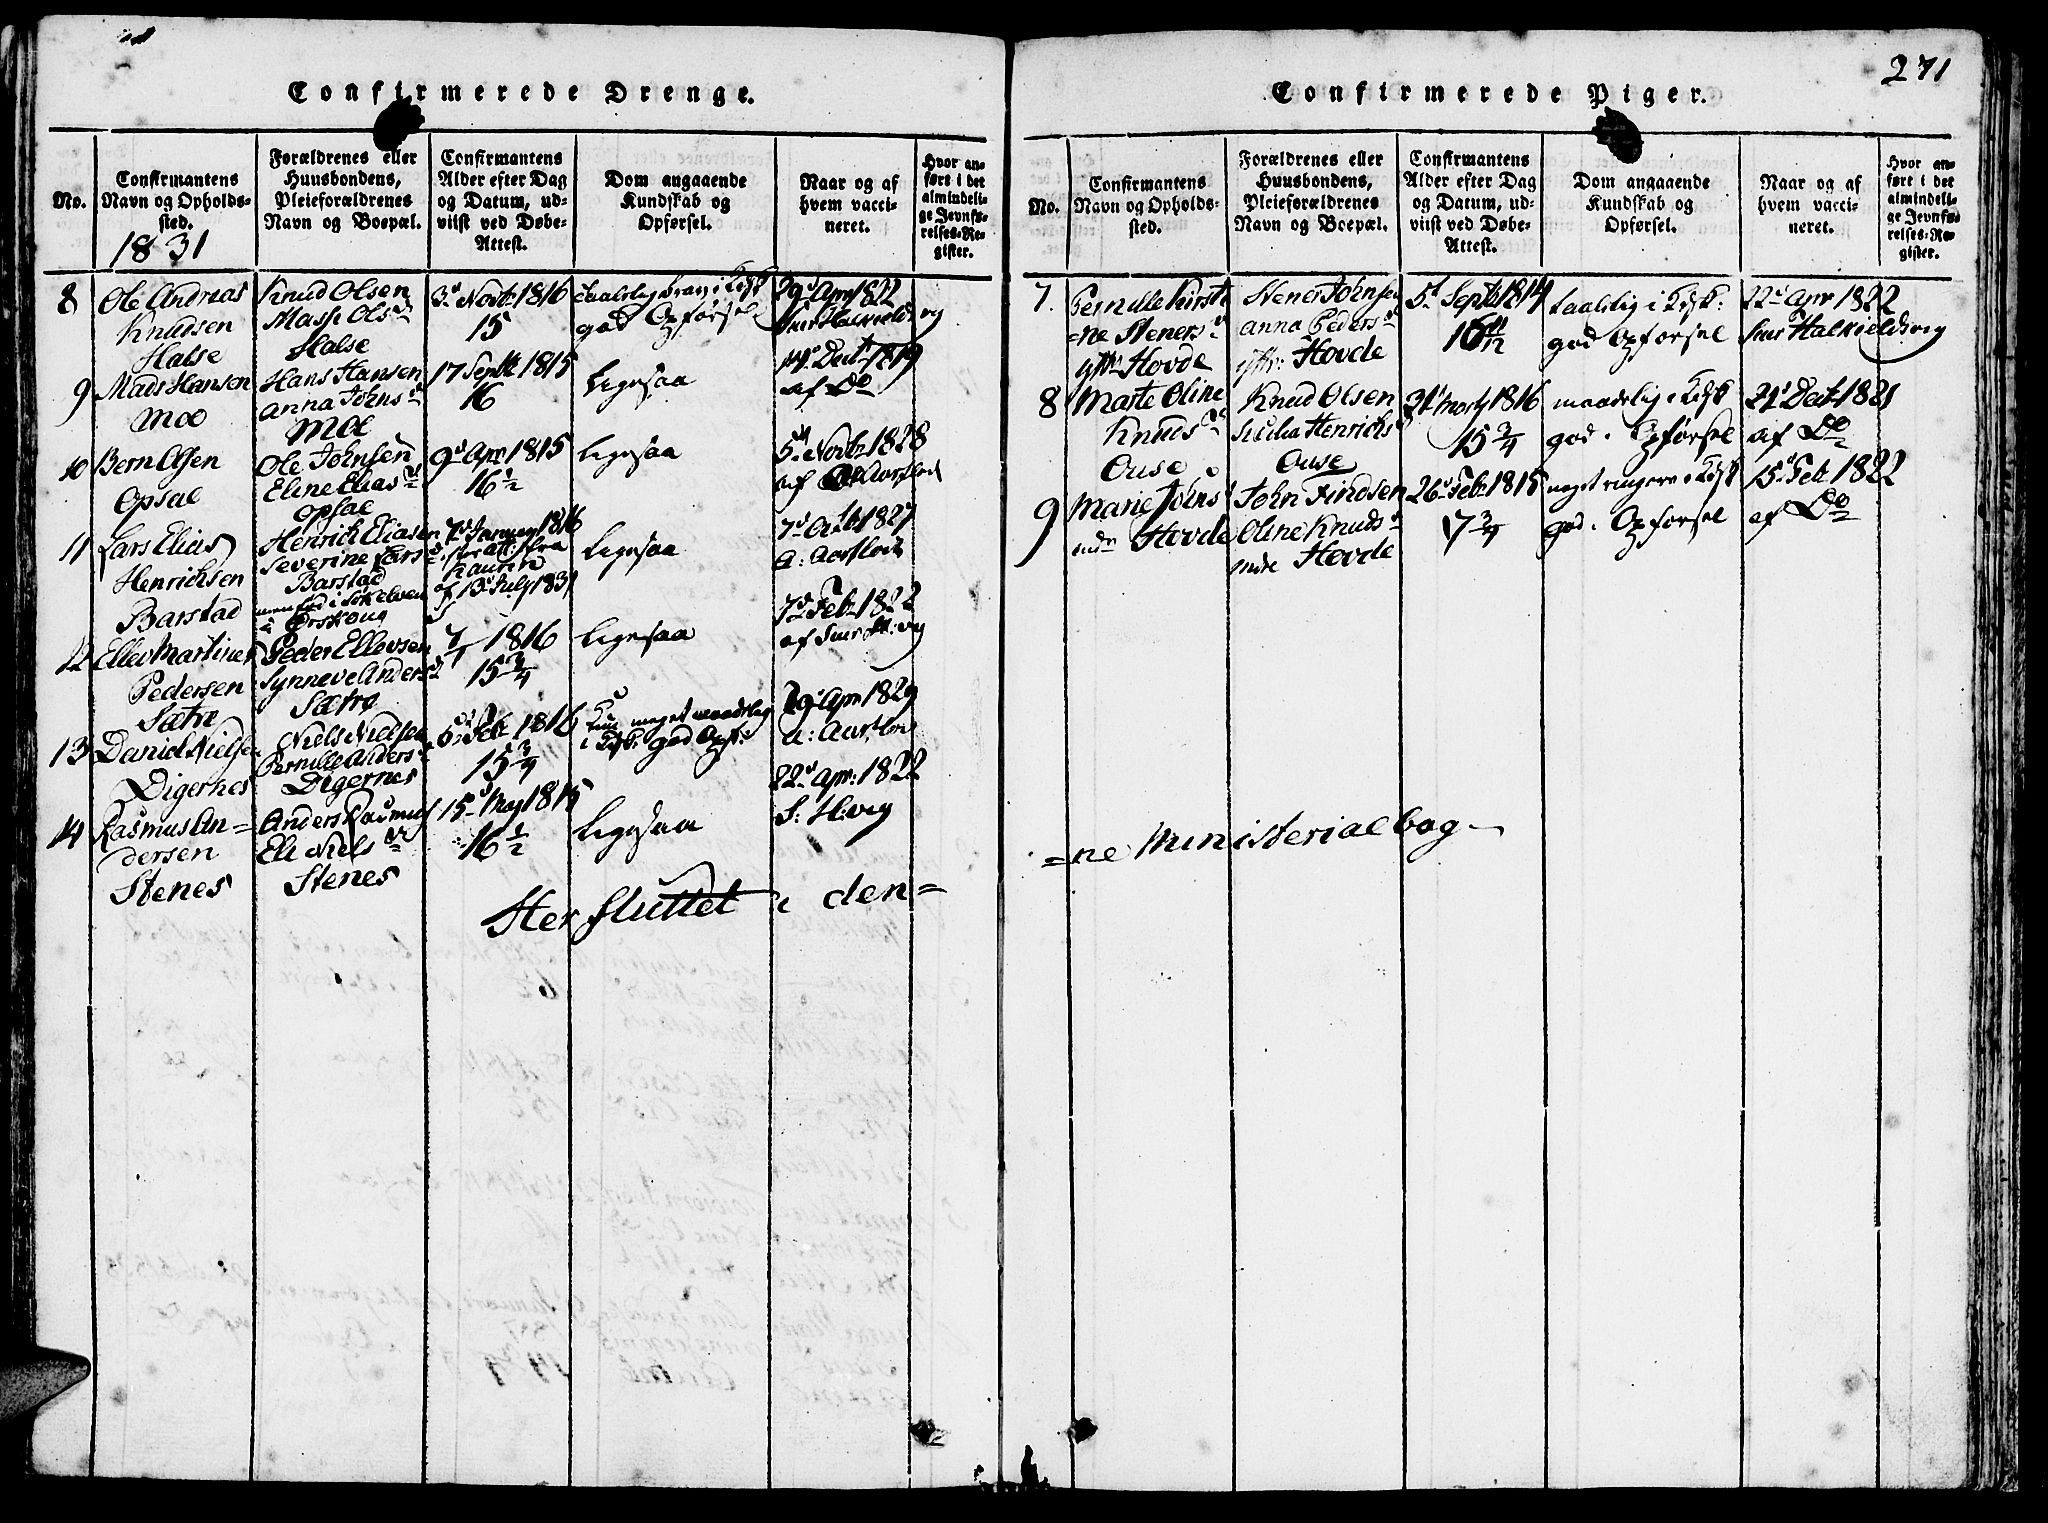 Confirmerede Drenge.
No.
Confirmantens
Navn og Opholds-
sted.
1831
Forældrenes eller
Huusbondens,
Pleieforældrenes
Navn og Boepæl.
Confirmantens
Alder efter Dag
og Datum, ud-
viist ved Døbe-
Attest.
Dom angaaende
Kundskab og
Opførsel.
Naar og af
hvem vacci-
neret.
Hvor an-
ført i det
almindeli-
ge Jevnfø-
relses-Re-
gister.
8
Ole Andreas
Knudsen
Halse
Knud Olsen
Masse Olsdr
Halse
3d Novbr 1816
15
god Opførsel
29d Apr 1822
9
Mads Hansen
Moe
Hans Hansen
Anna Johnsdr
Moe
17 Septbr 1815
16
Ligesaa
14d Decbr 1819
af Do
10
Bern Olsen
Opsal
Ole Johnsen
Eline Eliasdr
Opsal
9d Apr 1815
16½
Ligesaa
5d Novbr 1828
af Aarflot
11
Lars Elias
Henrichsen
Barstad
Henrich Eliasen
Severine Larsdr
Barstad
i Ørskoug
7d Januar 1816
af 13d July 1831
Ligesaa
7d 1827
a: Aarflot
12
Ellev Martines
Pedersen
Sætre
Peder Ellevsen
Synneve Andersdr
Sætre
7/1 1816
15¾
Ligesaa
7d Feb 1822
af
13
Daniel Nielsen
Digernes
Niels Nielsen
Pernille Andersdr
Digernes
5d Feb 1816
15¾
Kun meget maadelig
i god Opf:
29d Apr 1829
a: Aarflot
14
Rasmus An=
dersen
Stenes
Anders Rasmus
Eli Nielsdr
Stenes
15d May 1815
16½
Ligesaa
22d Apr: 1822
S: H:vig
Her sluttet i den=
271
Confirmerede Piger.
No.
Confirmantens
Navn og Opholds-
sted.
Forældrenes eller
Huusbondens,
Pleieforældrenes
Navn og Boepæl.
Confirmantens
Alder efter Dag
og Datum, ud-
viist ved Døbe-
Attest.
Dom angaaende
Kundskab og
Opførsel.
Naar og af
hvem vacci-
neret.
Hvor an-
ført i det
almindeli-
ge Jevnfø-
relses-Re-
gister.
7.
Pernille Kirsti
=ne Stenersdr
yttr Hovde
Stener Johnsen
Anna Pedersdr
yttr: Hovde
5d Septbr 1814
16 11/12
taalelig i
god Opførsel
22d Apr 1822
8
Marte Oline
Knudsdr
Ouse
Knud Olsen
Sicilia Henrichsdr
Ouse
31d Marts 1816
15¾
maadelig i
god Opførsel
21d Decbr 1821
af Do
9
Marie Johnsdr
indr Hovde
John Findsen
Oline Knudsdr
indre Hovde
26d Feb 1815
17¾
meget ringere i
god Opførsel
15d Feb 1822
af Do
=ne Ministerialbog